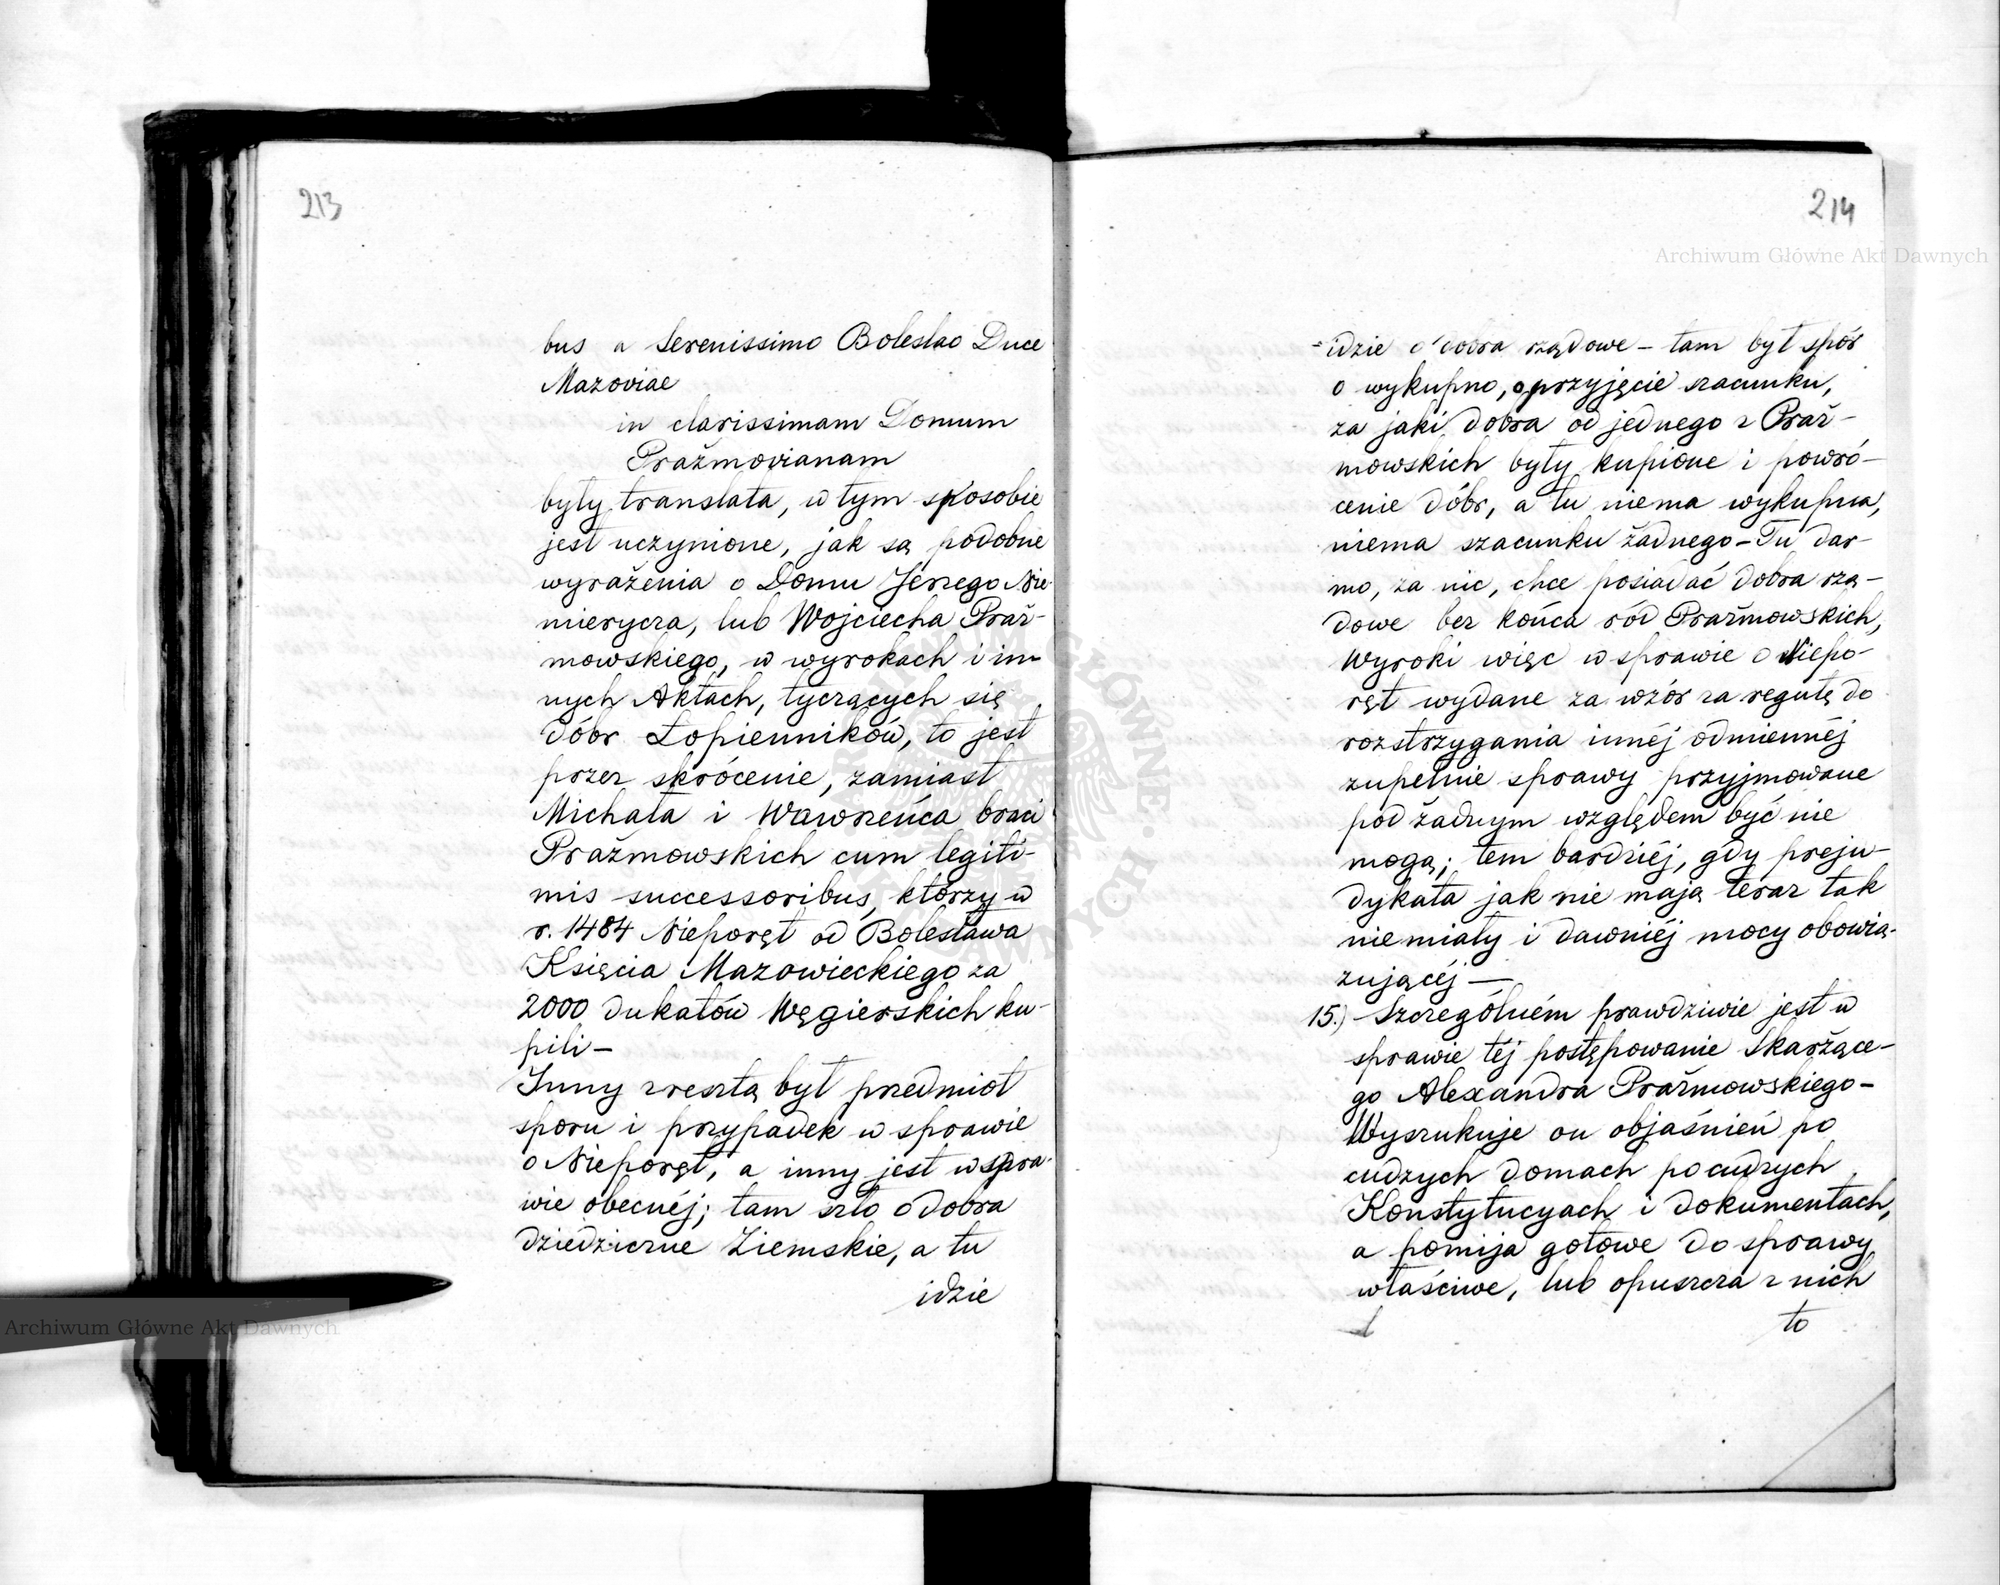 213
bus a Serenissimo Boleslao Duce
Mazoviae
in clarissimam Domum
Prażmovianam
były translata, w tym sposobie
jest uczynione, jak są podobne
wyrażenia o Domu Jerzego Nie-
mierycza, lub Wojciecha Praż-
mowskiego, w wyrokach i in-
nych Aktach, tyczących się
dóbr Łopienników, to jest
przez skrócenie, zamiast
Michała i Wawrzeńca braci
Prażmowskich cum legiti-
mis successoribus, którzy w
r. 1484 Nieporęt od Bolesława
Księcia Mazowieckiego za
2000 dukatów Węgierskich ku-
pili —
Inny zresztą był przedmiot
sporu i przypadek w sprawie
o Nieporęt, a inny jest w spra-
wie obecnéj; tam szło o dobra
dziedziczne Ziemskie, a tu
idzie
214
Archiwum Główne Akt Dawnych
idzie o dobra rządowe — tam był spór
o wykupno, o przyjęcie szacunku,
za jaki dobra od jednego z Praż-
mowskich były kupione i powró-
cenie dóbr, a tu niema wykupna,
niema szacunku żadnego — Tu dar-
mo, za nic, chce posiadać dobra rzą-
dowe bez końca ród Prażmowskich,
Wyroki więc w sprawie o Niepo-
ręt wydane za wzór za regułę do
rozstrzygania innéj odmiennéj
zupełnie sprawy przyjmowane
pod żadnym względem być nie
mogą; tem bardziéj, gdy preju-
dykata jak nie mają teraz tak
nie miały i dawniéj mocy obowią-
zującéj —
15.) Szczególném prawdziwie jest w
sprawie téj postępowanie Skarżące-
go Alexandra Prażmowskiego —
Wyszukuje on objaśnień po
cudzych domach po cudzych
Konstytucyach i dokumentach,
a pomija gotowe do sprawy
właściwe, lub opuszcza z nich
to
Archiwum Główne Akt Dawnych